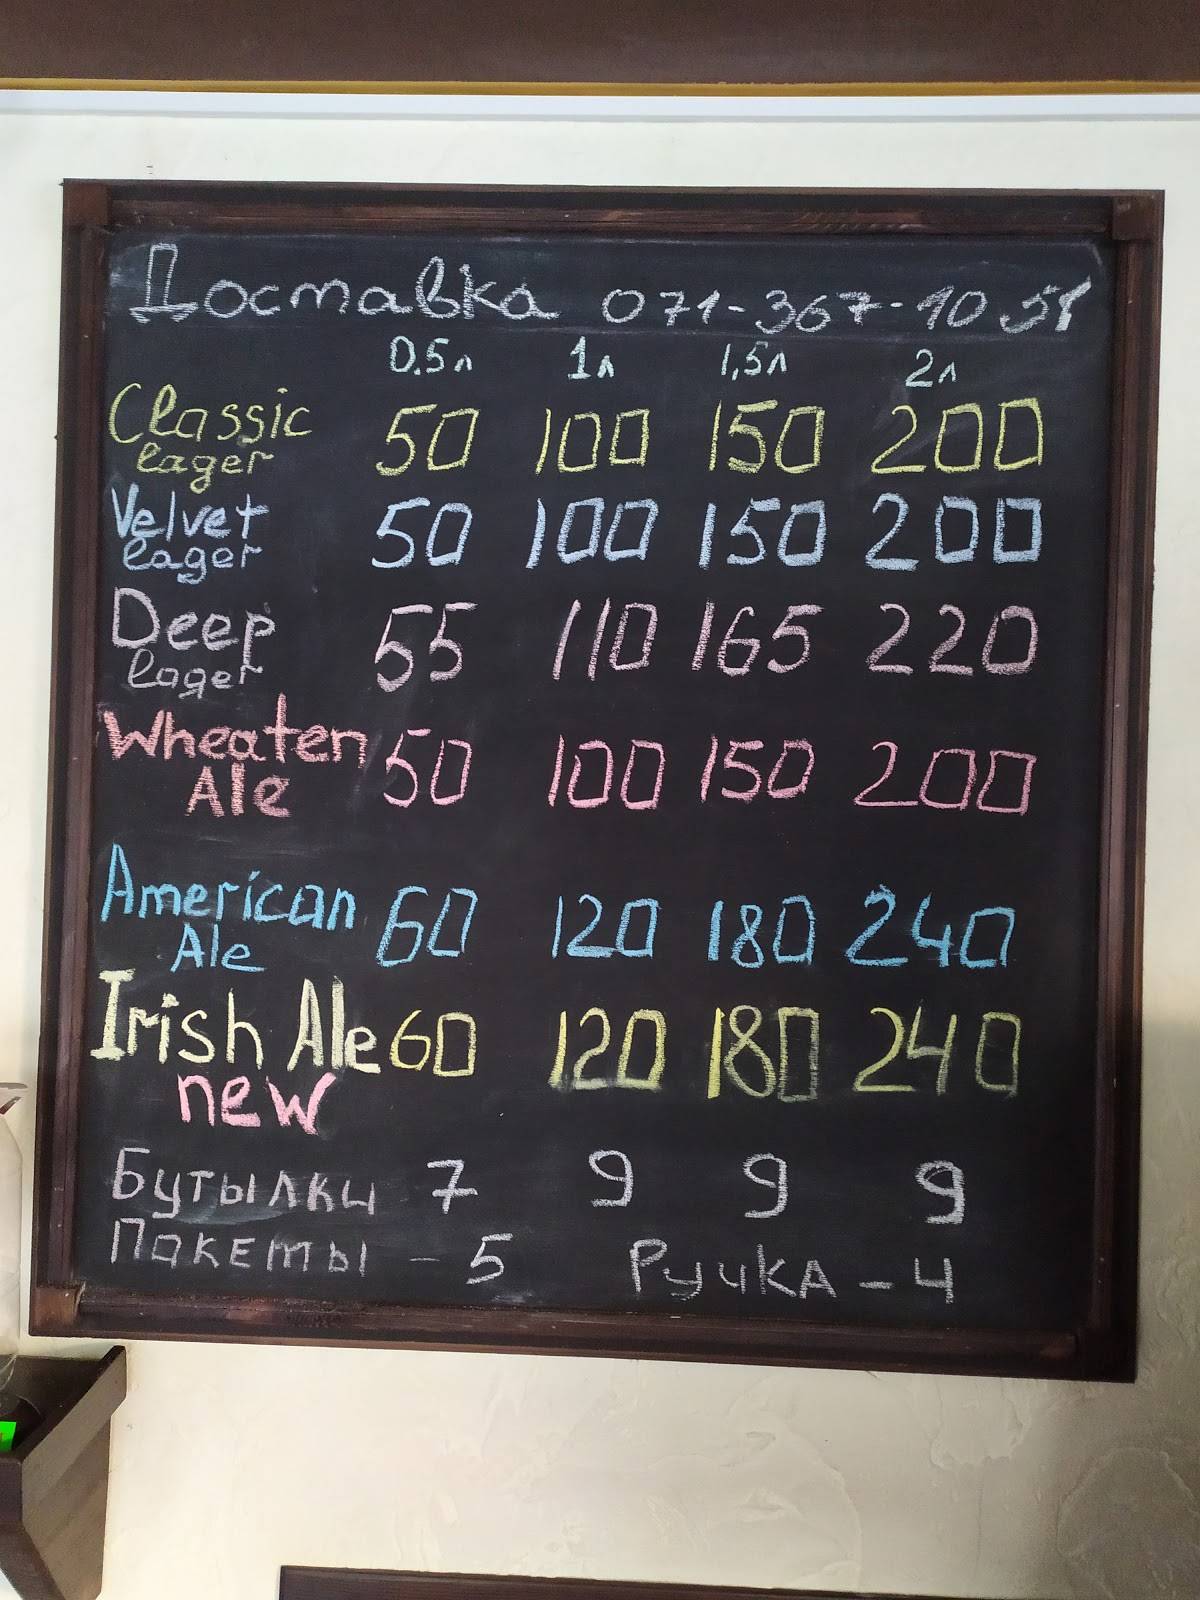 Доставка 071-367-10.58
0.5л 1л 1,5л 2л
Classic 50 100 150 200
lager
Velvet 50 100 150 200
lager
Deep 55 110 165 220
lager
Wheaten 50 100 150 200
Ale
American 60 120 180 240
Ale
Irish Ale 60 120 180 240
new
Бутылки 7 9 9 9
Пакеты - 5 Ручка - 4